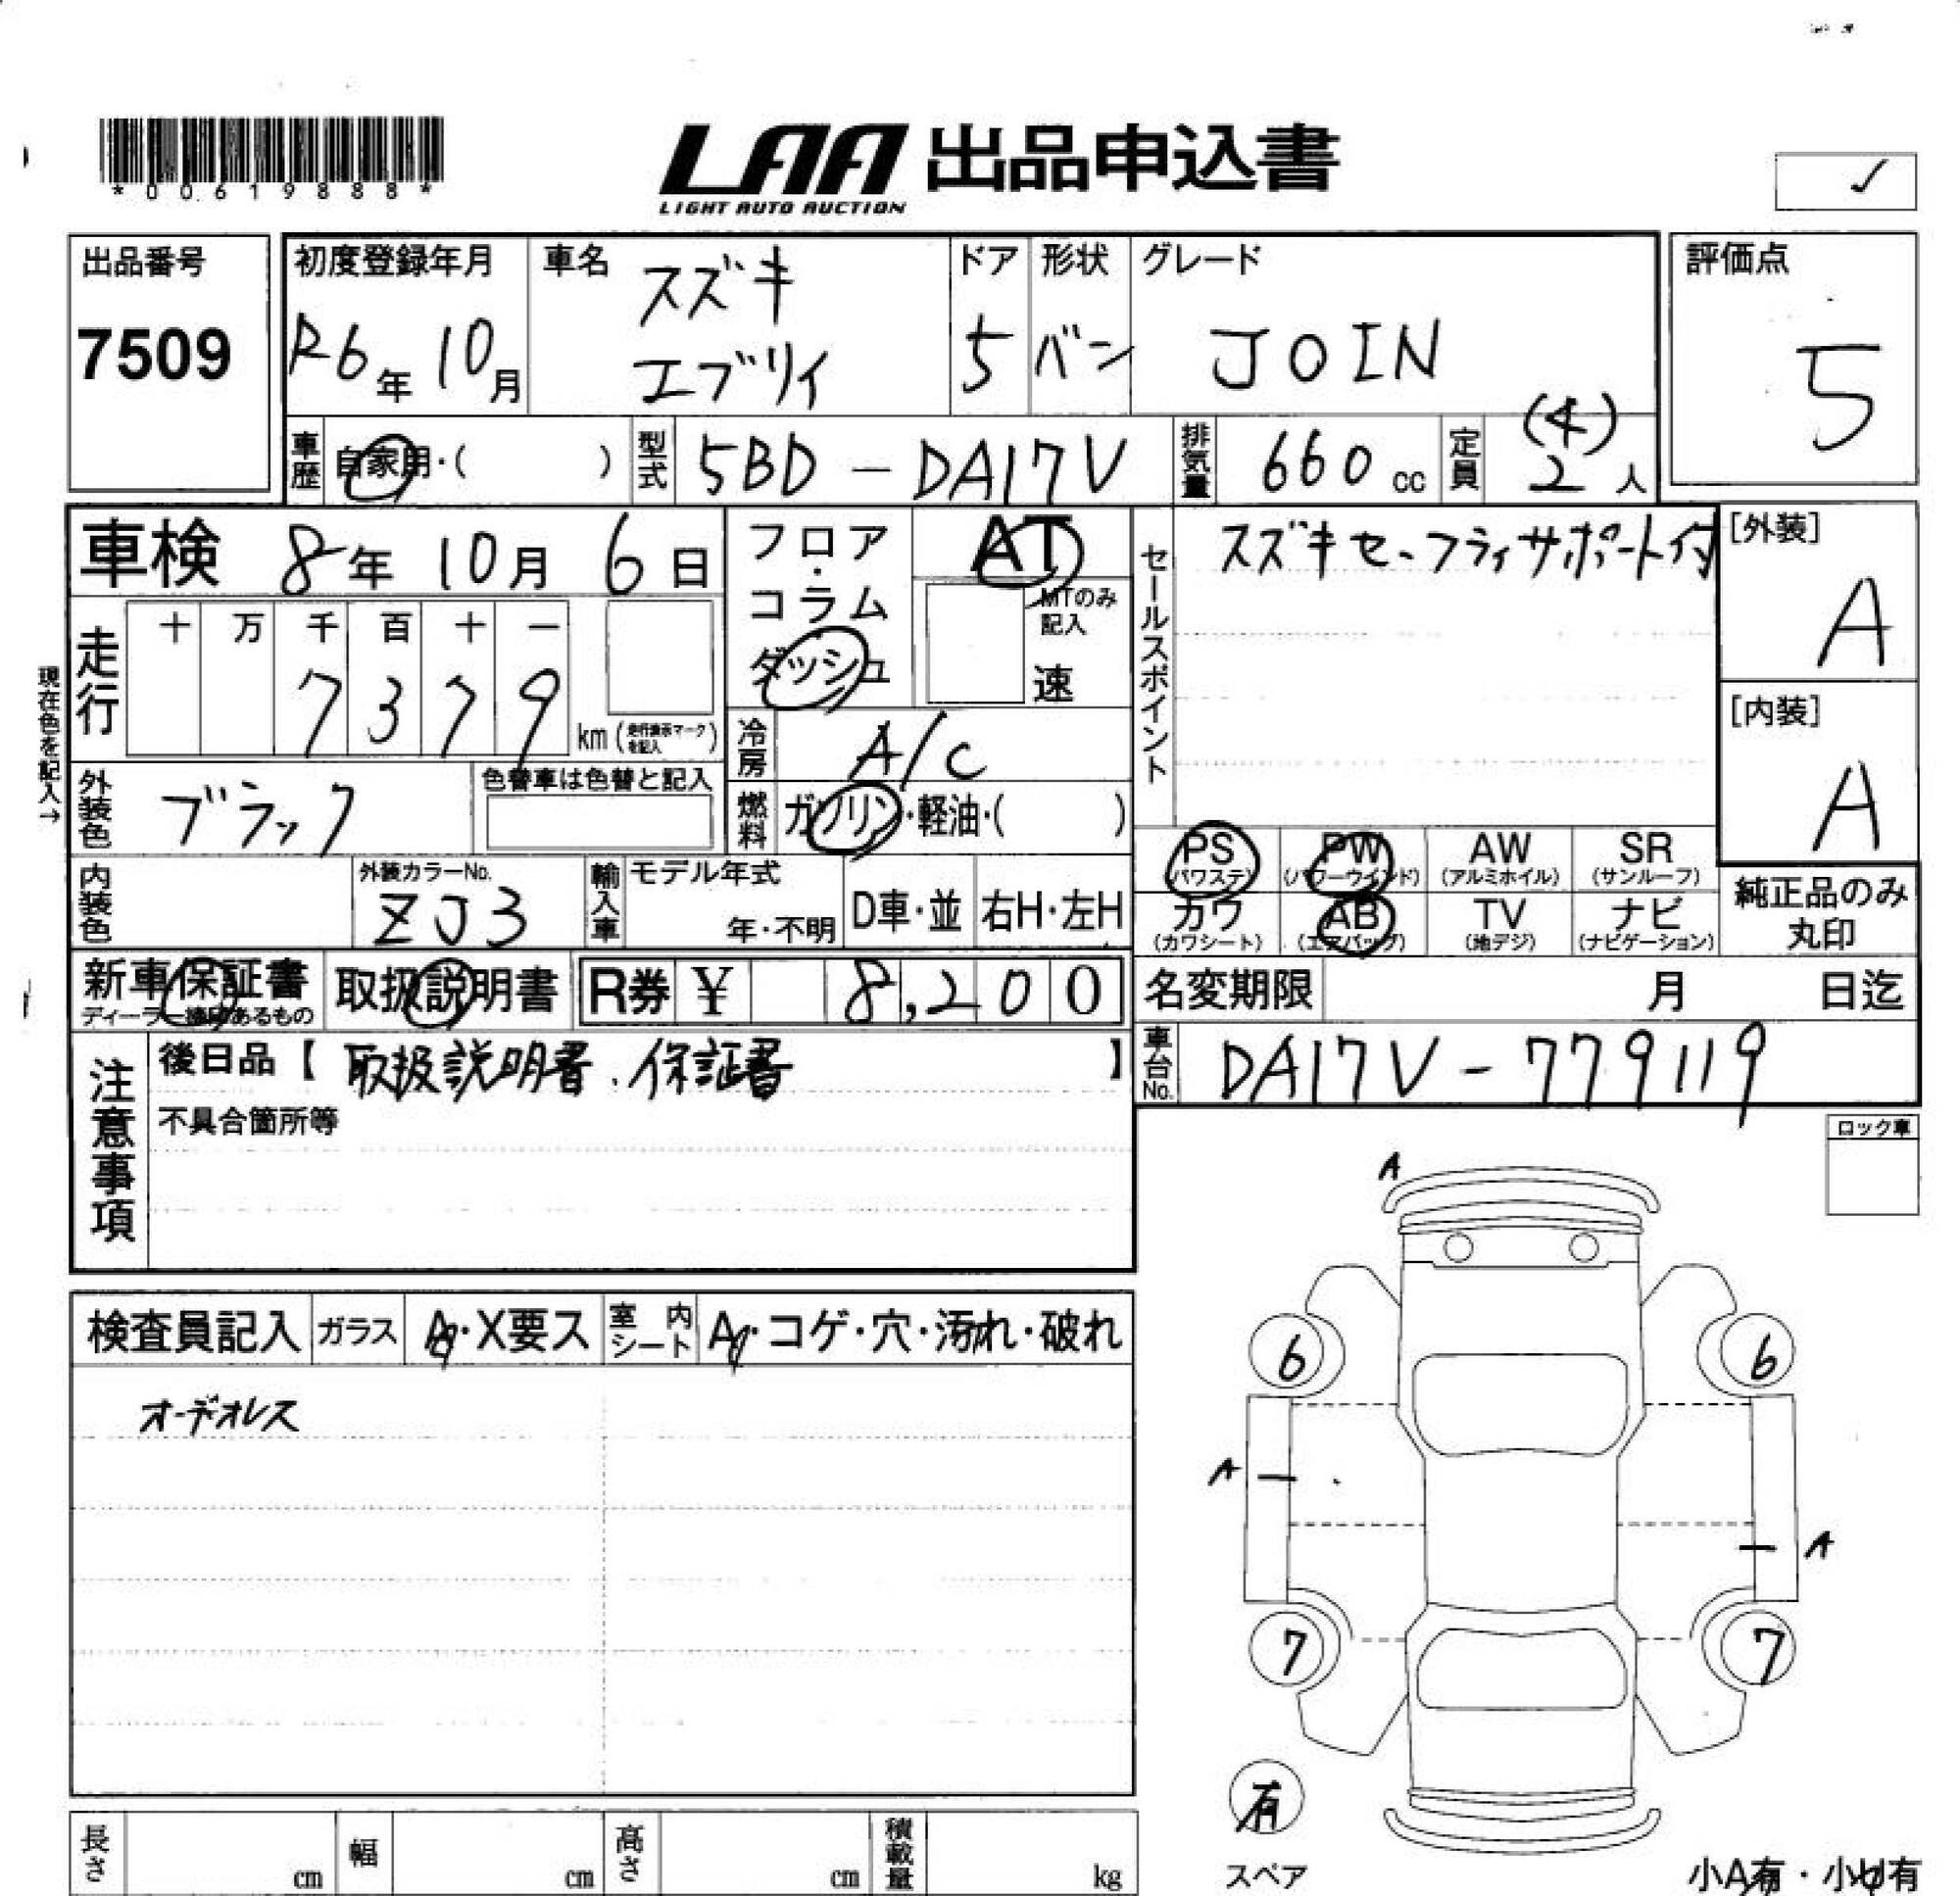 *00619888*
LAA 出品申込書
LIGHT AUTO AUCTION
✓
出品番号
7509
初度登録年月
R6年10月
車名
スズキ
エブリイ
ドア
5
形状
バン
グレード
JOIN
評価点
5
車歴
自家用・(  )
型式
5BD-DA17V
排気量
660cc
定員
(4)
2人
車検 8年10月6日
走行
十 万 千 百 十 一
7 3 7 9
km(走行表示マークを記入)
現在色を記入→
フロア・コラム
ダッシュ
AT
MTのみ記入
速
冷房
A/C
燃料
ガソリン・軽油・(  )
セールスポイント
スズキセーフティサポート付
[外装]
A
[内装]
A
外装色
ブラック
色替車は色替と記入
内装色
外装カラーNo.
ZJ3
輸入車
モデル年式
年・不明
D車・並
右H・左H
PS
(パワステ)
PW
(パワーウインド)
AW
(アルミホイル)
SR
(サンルーフ)
カワ
(カワシート)
AB
(エアバッグ)
TV
(地デジ)
ナビ
(ナビゲーション)
純正品のみ
丸印
新車保証書
ディーラー捺印あるもの
取扱説明書
R券 ¥ 8,200
名変期限 月 日迄
車台No.
DA17V-779119
注意事項
後日品【取扱説明書、保証書】
不具合箇所等
ロック車
検査員記入
ガラス
A・X要ス
室内シート
A・コゲ・穴・汚れ・破れ
オーデオレス
A
6
6
A
A
7
7
有
スペア
小A有・小U有
長さ
cm
幅
cm
高さ
cm
積載量
kg